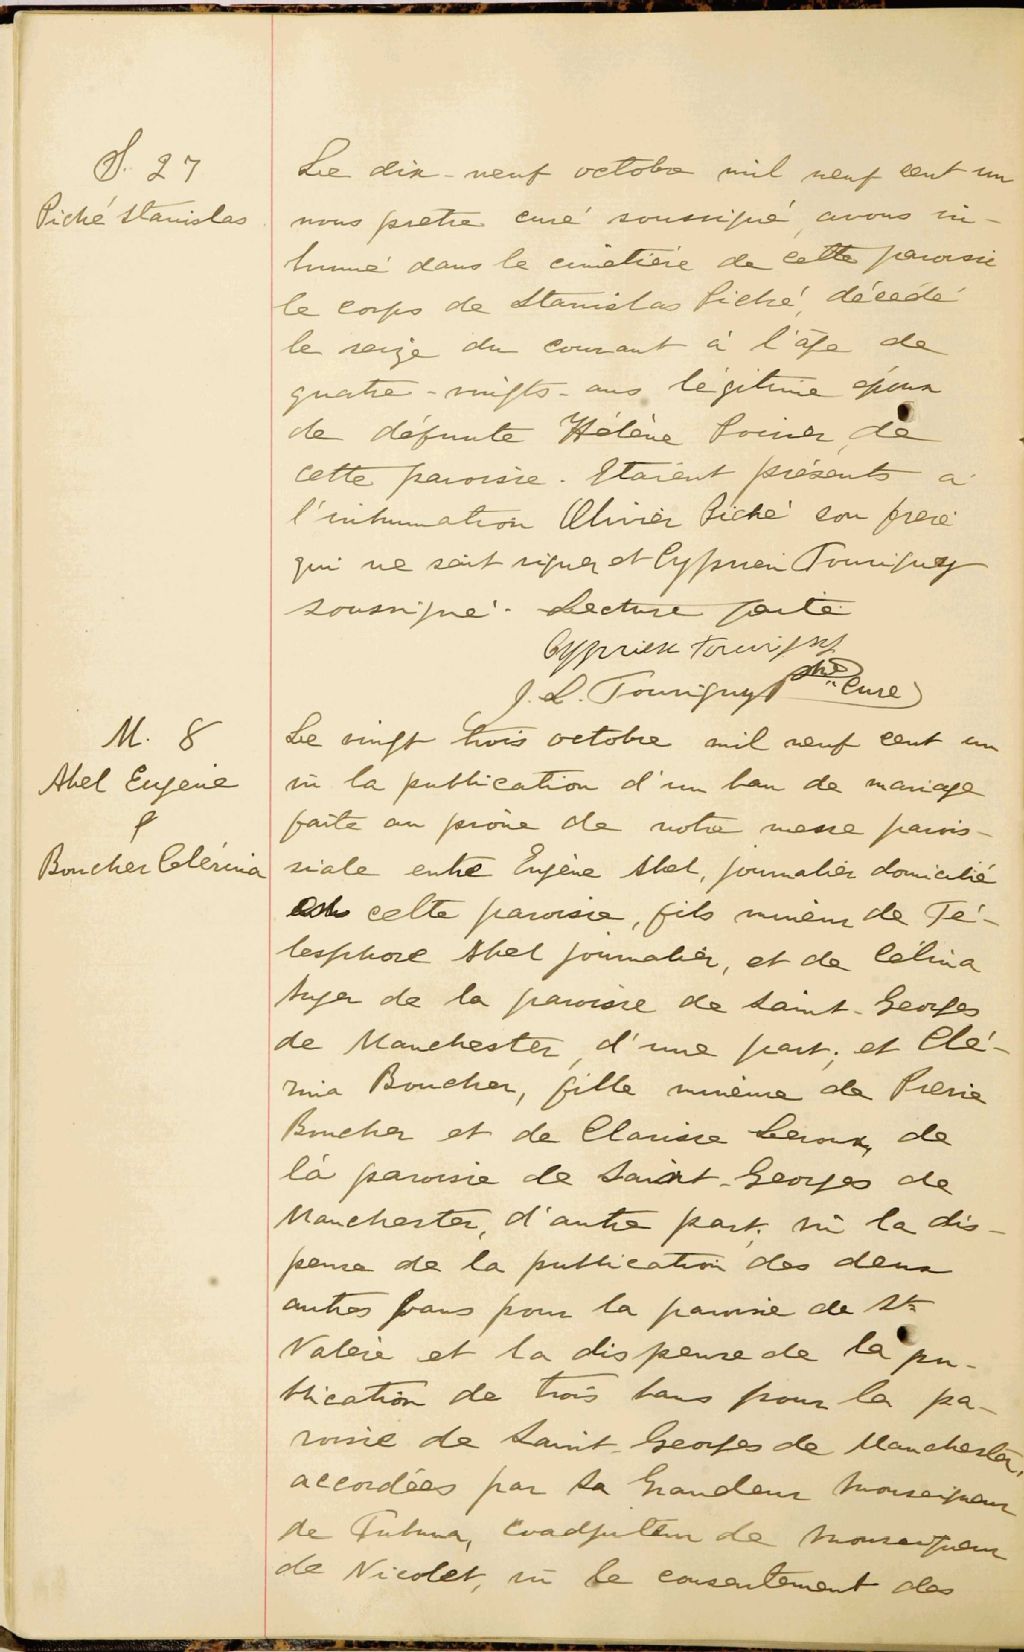 S. 27
Piché Stanislas
Le dix-neuf octobre mil neuf cent un
nous pretre curé soussigné, avons in-
humé dans le cimetière de cette paroisse
le corps de Stanislas Piché, décédé
le seize du courant à l'âge de
quatre-vingts-ans légitime époux
de défunte Hélène Poirier, de
cette paroisse. Etaient présents à
l'inhumation Olivier Piché son frere
qui ne sait signer et Cyprien Tourigny
soussigné. Lecture faite
Cyprien Tourigny
J. L. Tourigny Ptre Curé
M. 8
Abel Eugène
&
Boucher Clérina
Le vingt trois octobre mil neuf cent un
vu la publication d'un ban de mariage
faite au prône de notre messe parois-
siale entre Eugène Abel, journalier domicilié
cette paroisse, fils mineur de Té-
lesphore Abel journalier, et de Célina
Auger de la paroisse de Saint-Georges
de Manchester, d'une part; et Clé-
rina Boucher, fille mineure de Pierre
Boucher et de Clarisse Leroux, de
la paroisse de Saint-Georges de
Manchester, d'autre part; vu la dis-
pense de la publication des deux
autres bans pour la paroisse de St
Valère et la dispense de la pu-
blication de trois bans pour la pa-
roisse de Saint-Georges de Manchester,
accordées par Sa Grandeur Monseigneur
de Tubuna, coadjuteur de Monseigneur
de Nicolet, vu le consentement des